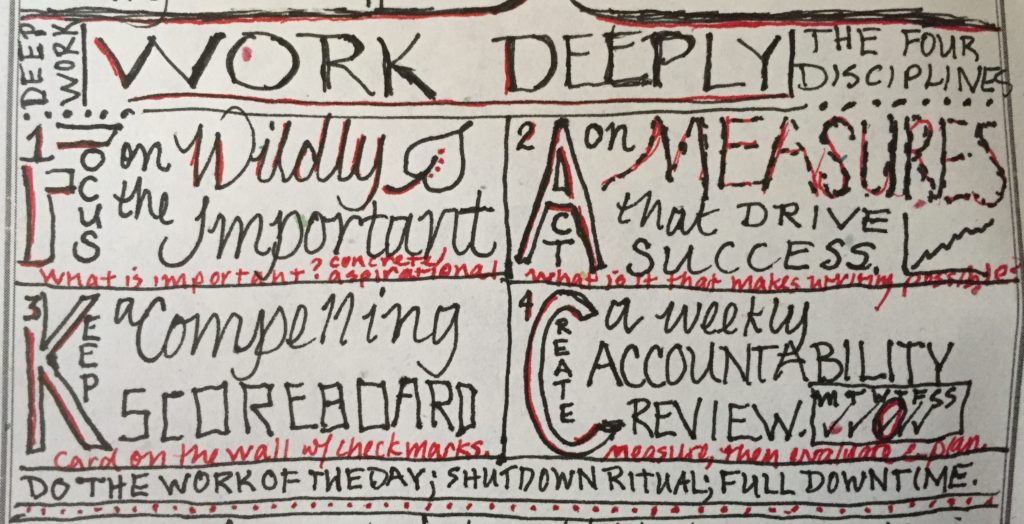 DEEP WORK
WORK DEEPLY
THE FOUR
DISCIPLINES
1 FOCUS on Wildly
the Important
What is important? concrete/
aspirational
2 ACT on MEASURES
that DRIVE
SUCCESS.
What is it that makes writing possible?
3 KEEP a Compelling
SCOREBOARD
card on the wall w/ checkmarks.
4 CREATE a weekly
ACCOUNTABILITY
REVIEW.
M T W T F S S
measure, then evaluate & plan.
DO THE WORK OF THE DAY; SHUTDOWN RITUAL; FULL DOWNTIME.